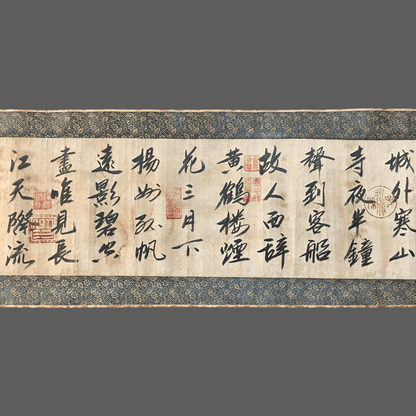 城外寒山
寺夜半鐘
聲到客船
故人西辭
黄鶴樓煙
花三月下
楊州孤帆
遠影碧空
盡唯見長
江天際流